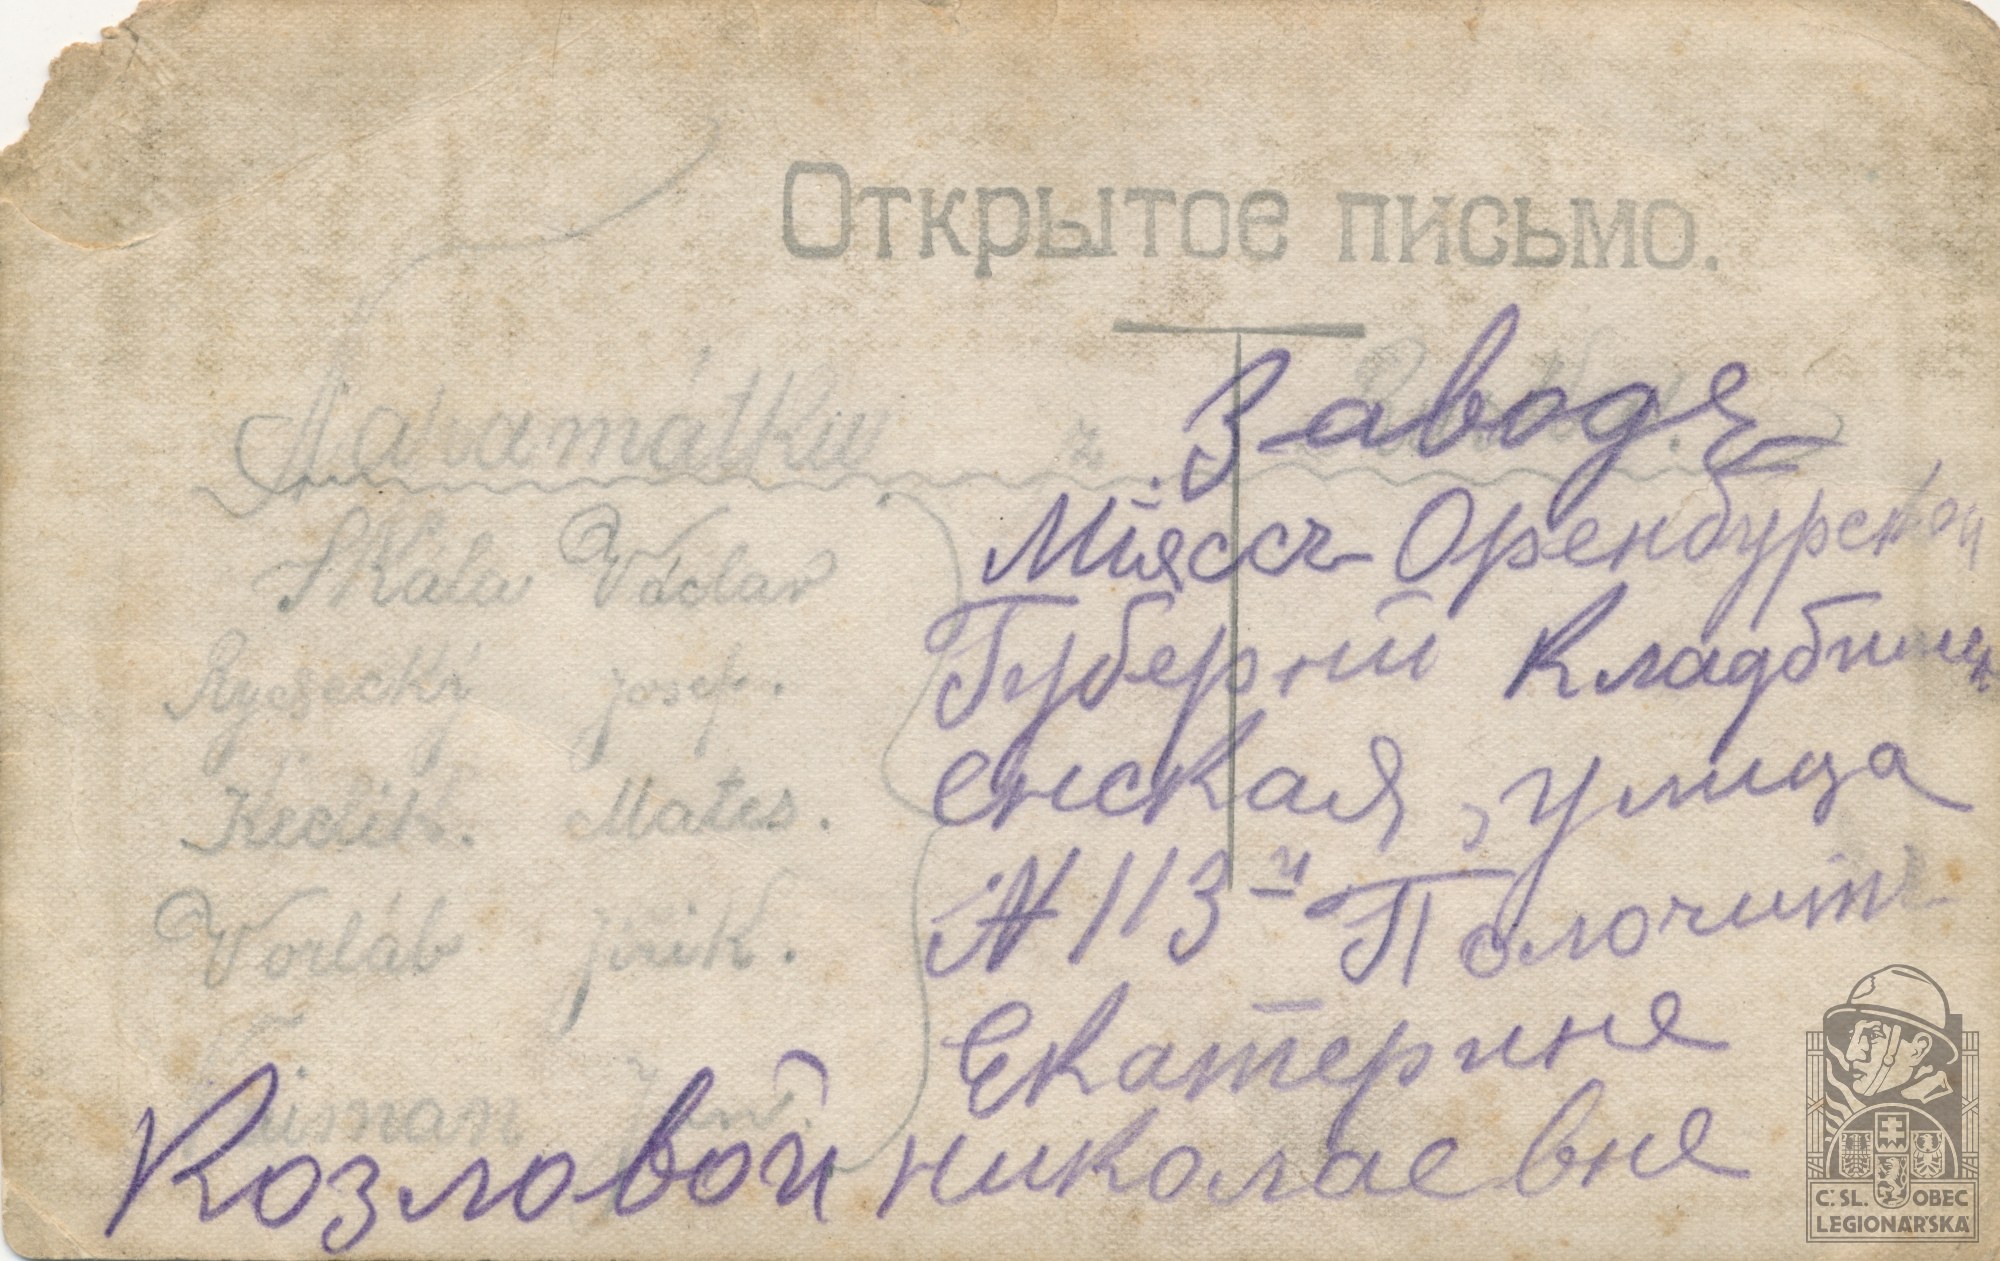 Открытое письмо.
Na památku z
Skála Václav
Josef.
Kedlik. Mates.
Vorláb Jiřík.
Заводъ
Міяссъ Оренбурской
Губерній Кладбищ
енская, улица
№ 113й Полочить
Екатерине
Козловой николаевне
Č. SL. OBEC
LEGIONÁŘSKÁ